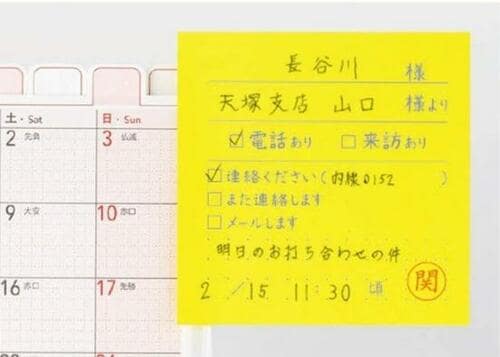 土・Sat 日・Sun
2 先負 3 仏滅
9 大安 10 赤口
16 赤口 17 先勝
長谷川 様
天塚支店 山口 様より
☑電話あり □来訪あり
☑連絡ください(内線0152 )
□また連絡します
□メールします
明日のお打ち合わせの件
2/15 11:30 頃 関